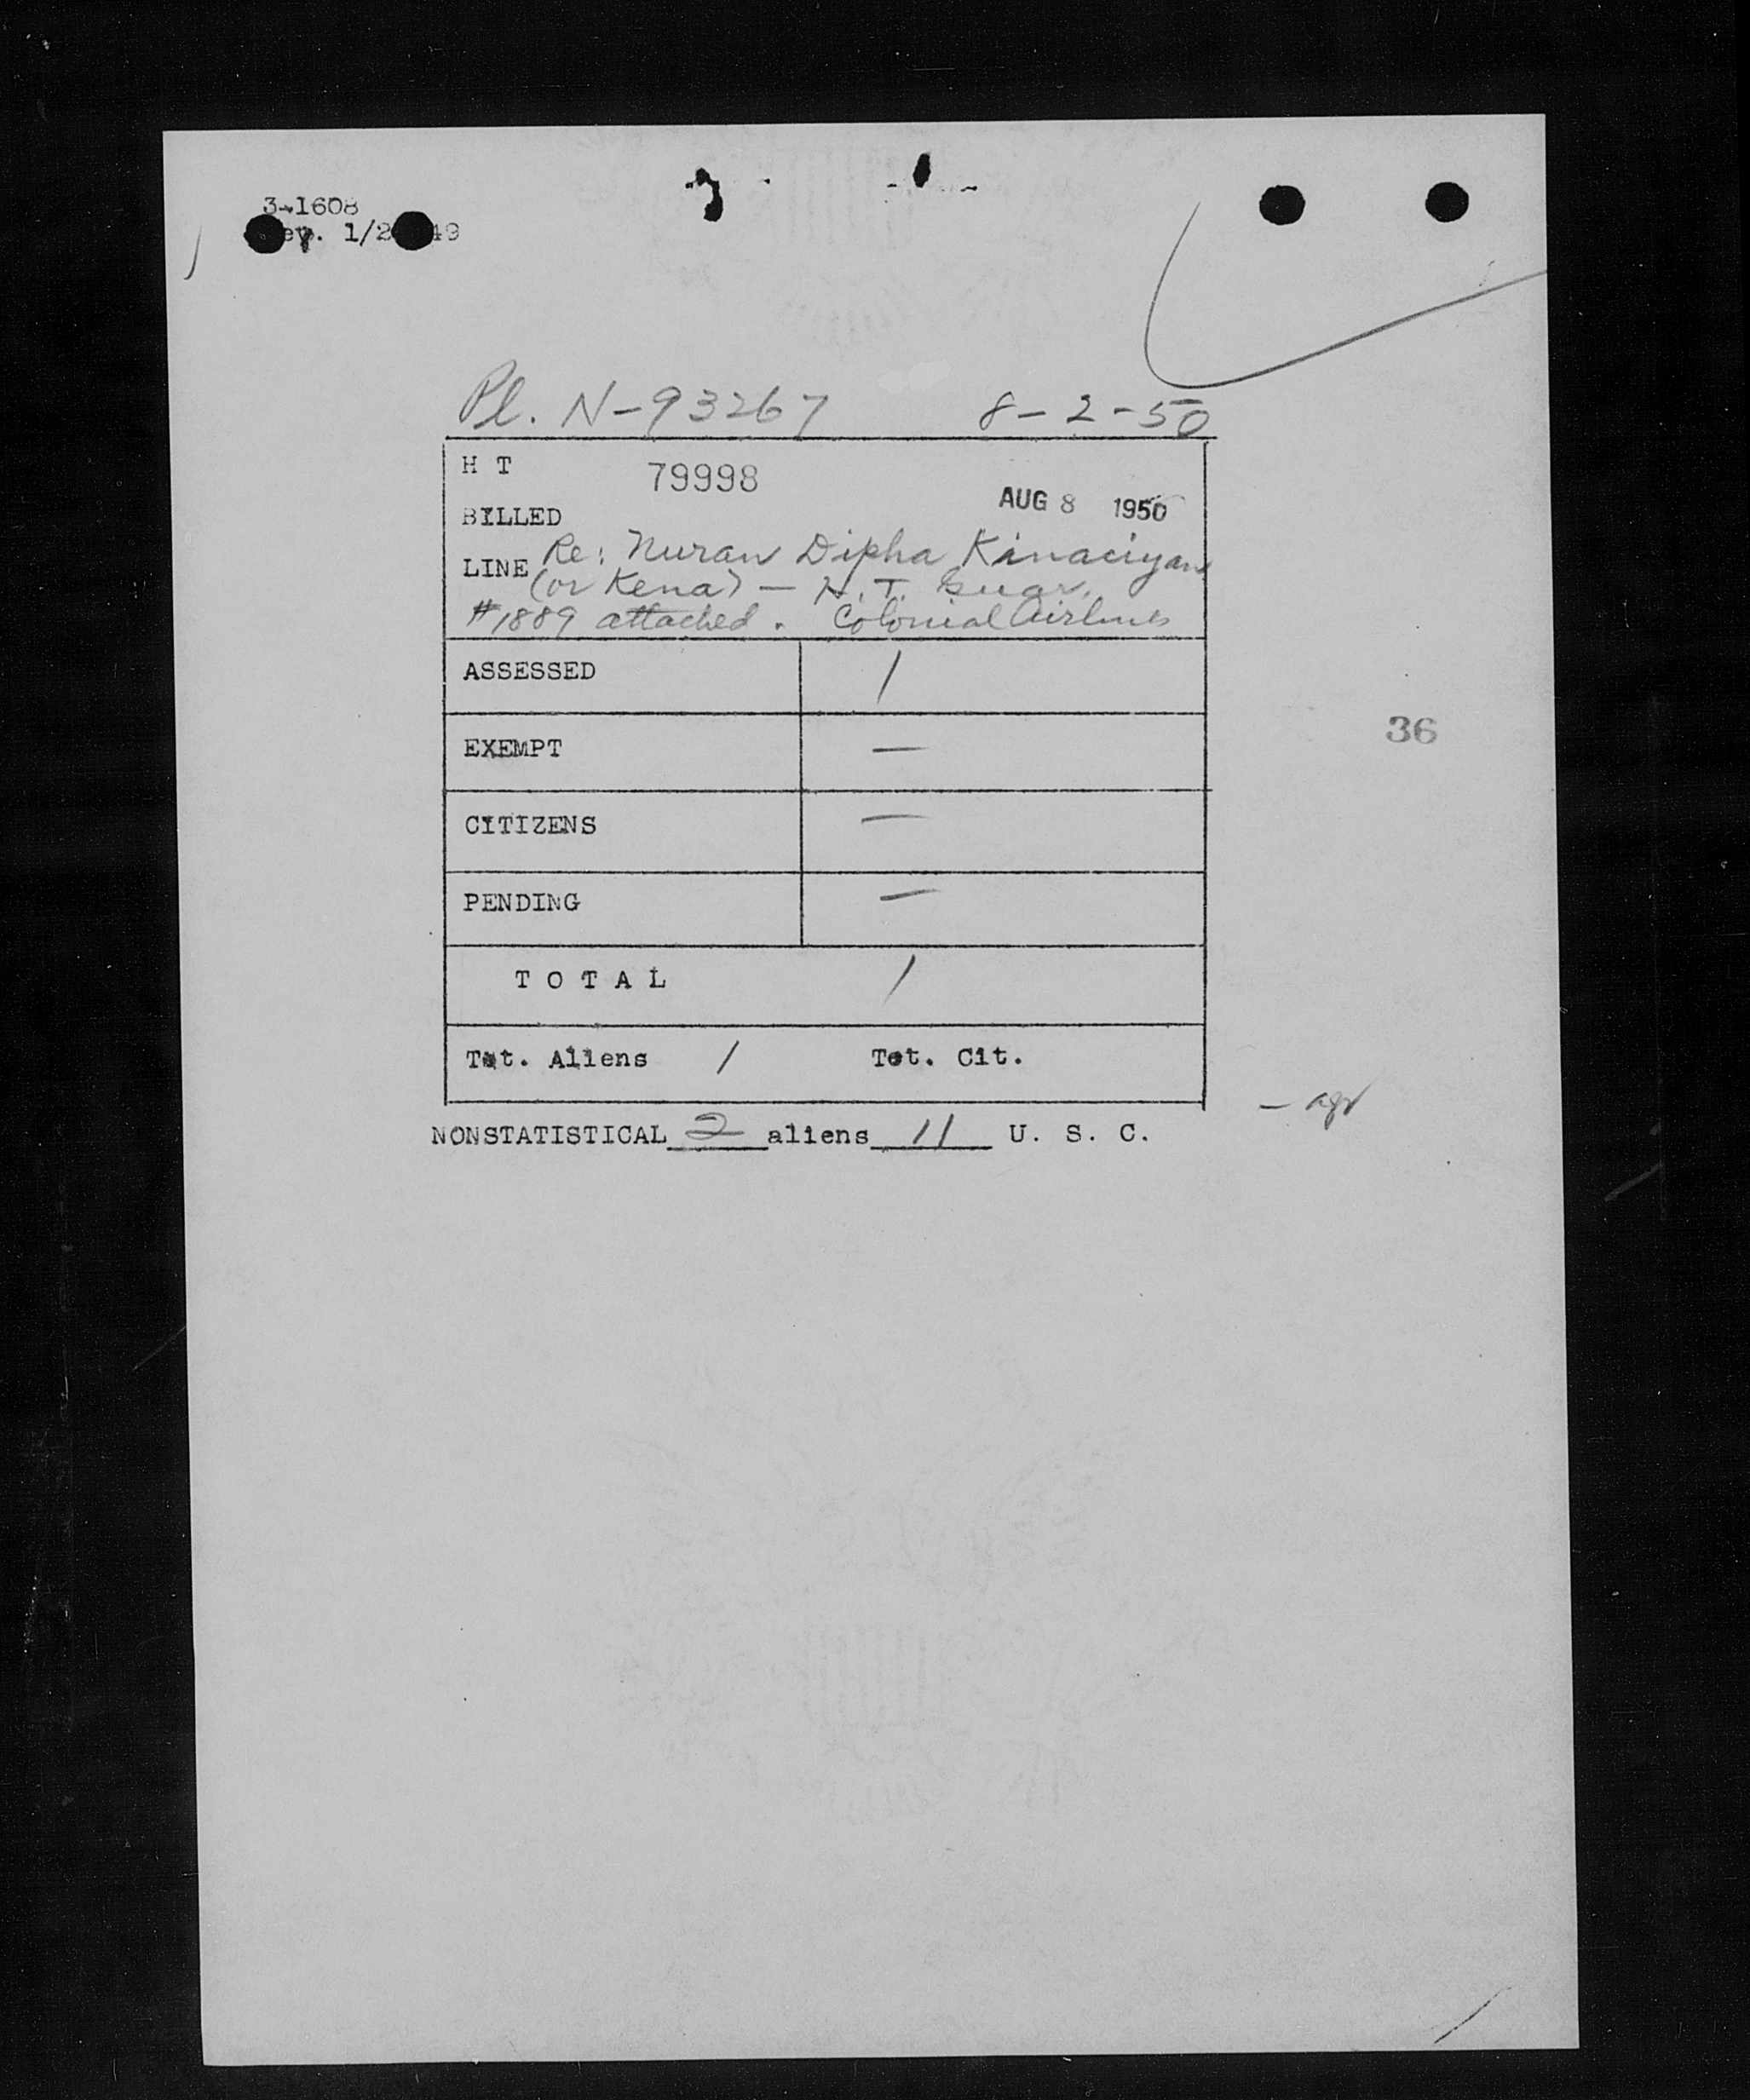 3-1608
Rev. 1/2 49
Pl. N-93267 8-2-50
H T 79998
AUG 8 1950
BILLED
Re: Nuran Dipha Kinaciyan
LINE (or Kena) — H.T. Guar.
#1889 attached. Colonial Airlines
ASSESSED /
EXEMPT —
36
CITIZENS —
PENDING —
T O T A L /
Tot. Aliens / Tot. Cit.
NONSTATISTICAL 2 aliens 11 U. S. C.